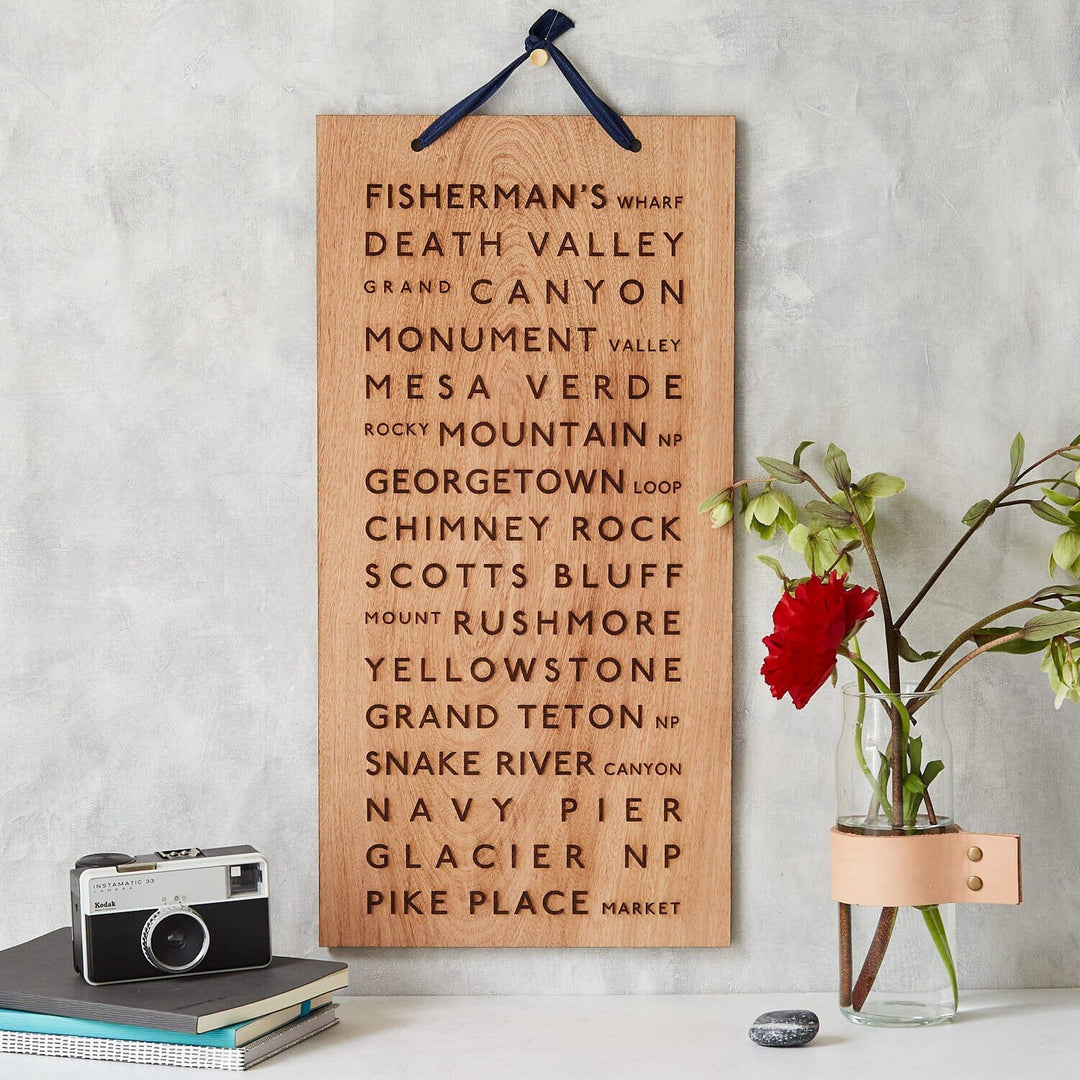 FISHERMAN'S WHARF
DEATH VALLEY
GRAND CANYON
MONUMENT VALLEY
MESA VERDE
ROCKY MOUNTAIN NP
GEORGETOWN LOOP
CHIMNEY ROCK
SCOTTS BLUFF
MOUNT RUSHMORE
YELLOWSTONE
GRAND TETON NP
SNAKE RIVER CANYON
NAVY PIER
GLACIER NP
PIKE PLACE MARKET
INSTAMATIC 33
CAMERA
Kodak